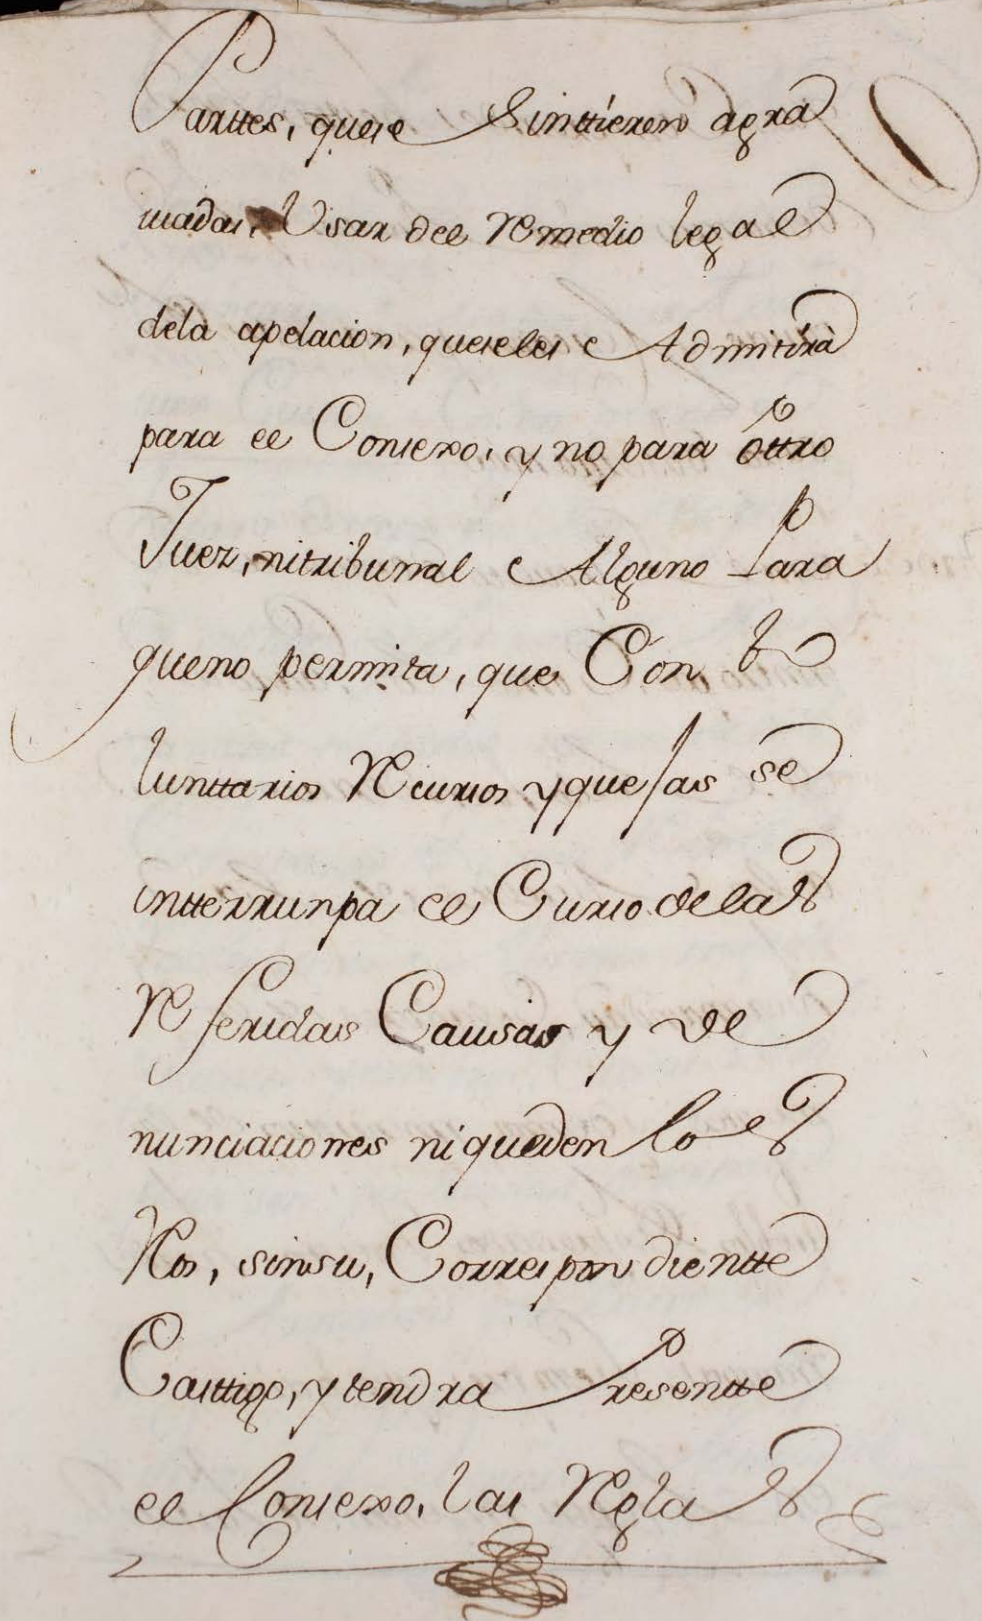 Parttes, quese Sinttieren agra
uiadas, Usar del Remedio legal
dela apelacion, queseles Admitirà
para el Consexo, y no para ôttro
Juez, nitribunal Alguno Para
queno permita, que Con bo
luntarios Recursos y quejas se
intterrunpa el Curso delas
Referidas Causas y de
nunciaciones ni queden los
Reos, sinsu, Correspondientte
Casttigo, y tendra Presentte
el Consexo, las Reglas